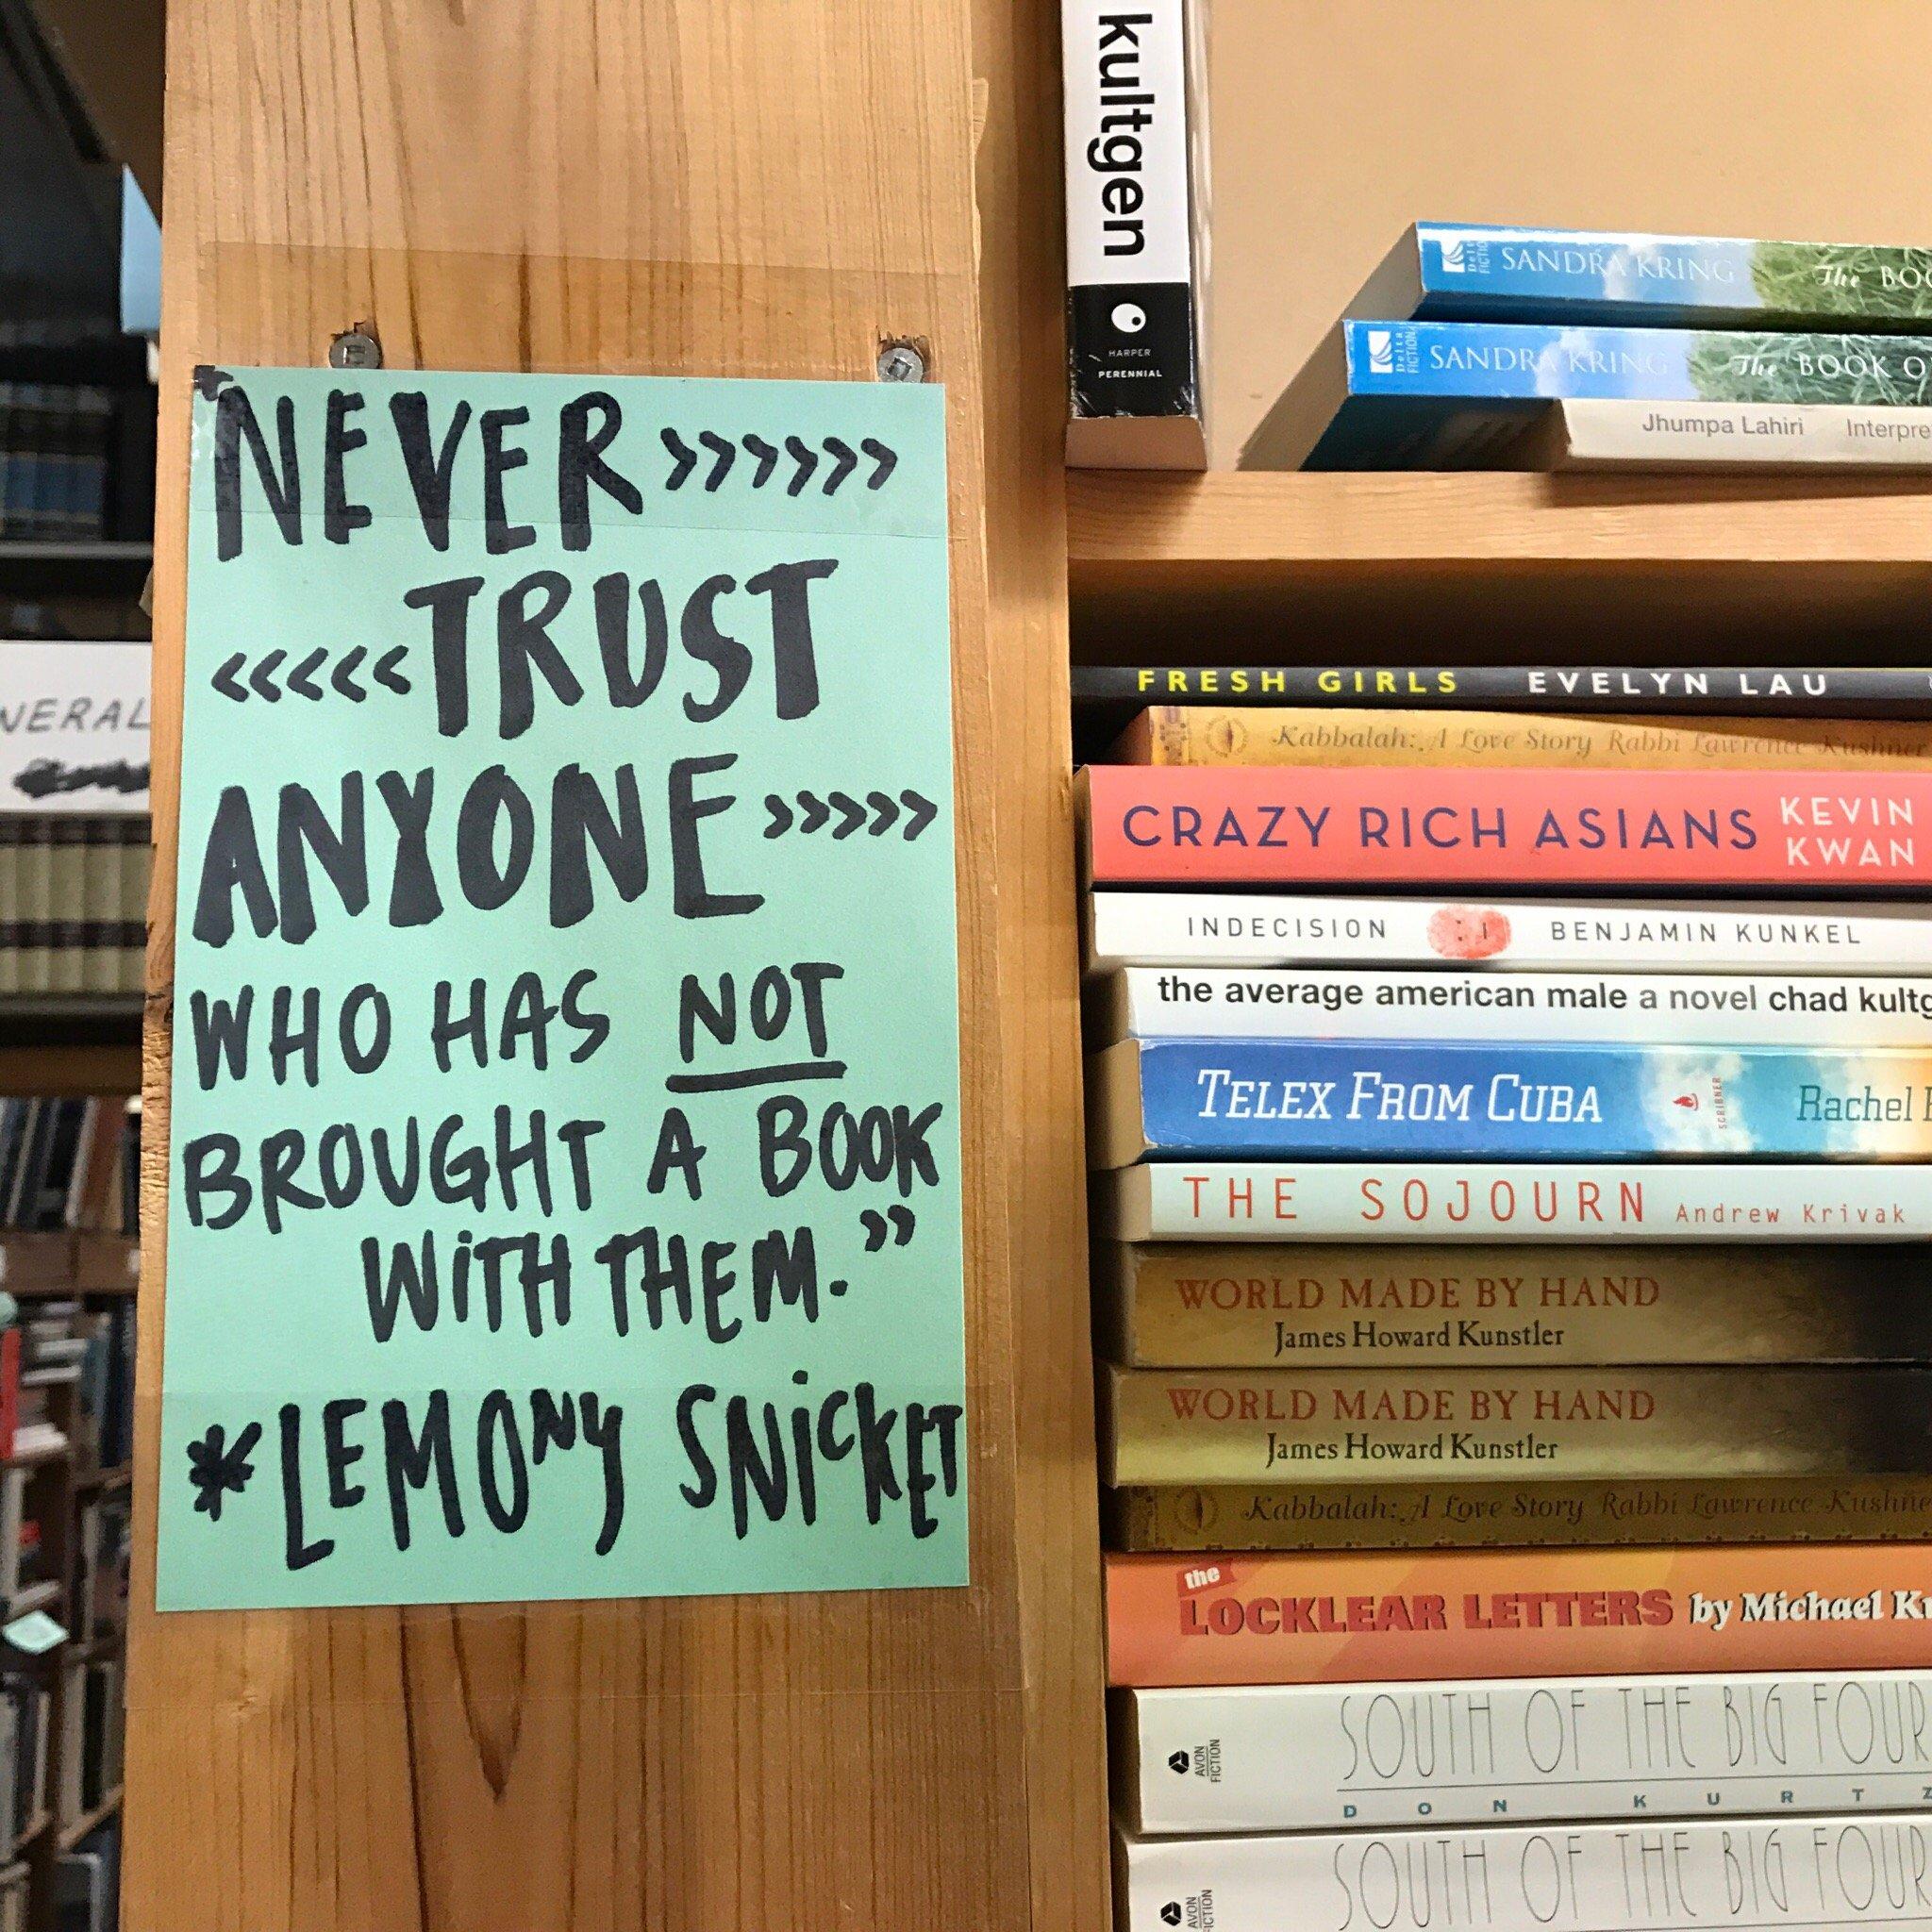 "NEVER >>>>>>
<<<<< TRUST
ANYONE >>>>>
WHO HAS NOT
BROUGHT A BOOK
WITH THEM."
*LEMONY SNICKET
VERAL
kultgen
HARPER
PERENNIAL
Delta
FICTION
SANDRA KRING The BOO
Delta
FICTION
SANDRA KRING The BOOK O
Jhumpa Lahiri Interpre
FRESH GIRLS EVELYN LAU
Kabbalah: A Love Story Rabbi Lawrence Kushner
CRAZY RICH ASIANS KEVIN
KWAN
INDECISION BENJAMIN KUNKEL
the average american male a novel chad kultg
TELEX FROM CUBA SCRIBNER Rachel
THE SOJOURN Andrew Krivak
WORLD MADE BY HAND
James Howard Kunstler
WORLD MADE BY HAND
James Howard Kunstler
Kabbalah: A Love Story Rabbi Lawrence Kushne
the
LOCKLEAR LETTERS by Michael Ku
AVON
FICTION
SOUTH OF THE BIG FOUR
DON KURTZ
AVON
FICTION
SOUTH OF THE BIG FOUR